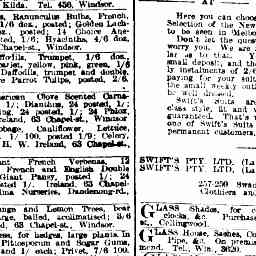 Kilda. Tel. 456, Windsor.
Ranunculus Bulbs, French,
1/6 doz., posted; Golden Lach-
posted; 14 Choice Ane-
1/6; Hyacinths, 4/6 doz,
Chapel-st., Windsor.
Daffodils, Trumpet, 1/6 doz.
yellow, pink, green, 1/6
Daffodils, trumpet and double,
Parrot Tulips, posted, 2/6.
American Clove Scented Carna-
1/; Dianthus, 24 posted, 1/;
24 posted, 1/; 24 Phlox,
Ireland, 63 Chapel-st., Windsor
Cabbage, Cauliflower, Lettuce,
1/ 100, posted 1/9; Celery,
H. W. Ireland, 63 Chapel-st.
French Verbenas, 12
French and English Double
Giant Pansy, posted 1/; 24
posted 1/. Ireland, 63 Chapel-
Nurseries, Dandenong-rd.,
Orange and Lemon Trees, bear
large, balled, acclimatised; 3/6
63 Chapel-st., Windsor.
for hedges, large plants. In
Pittosporum and Sugar Gums,
and 1/ each; Privet, 7/6 100.
AT
Here you can choose
Selection of the New
to be seen in Melbo
Don't let the ques
worry you. We are
as to that. Y
small deposit, and the
ly instalments of 2/6
paying for your suit
the small weekly outl
be well dressed.
Swift's Suits are
class style, fit and w
guaranteed. That's
one of Swift's Suits
permanent customers.
SWIFT'S PTY. LTD. (La
SWIFT'S PTY. LTD. (La
257-259 Swan
Clothiers an
GLASS Shades, for c
clocks, &c. Purchase
st., Collingwood.
GLASS House, Sashes, Cu
Pipe, &c. On premis
mond. Tel., Win. 3620.